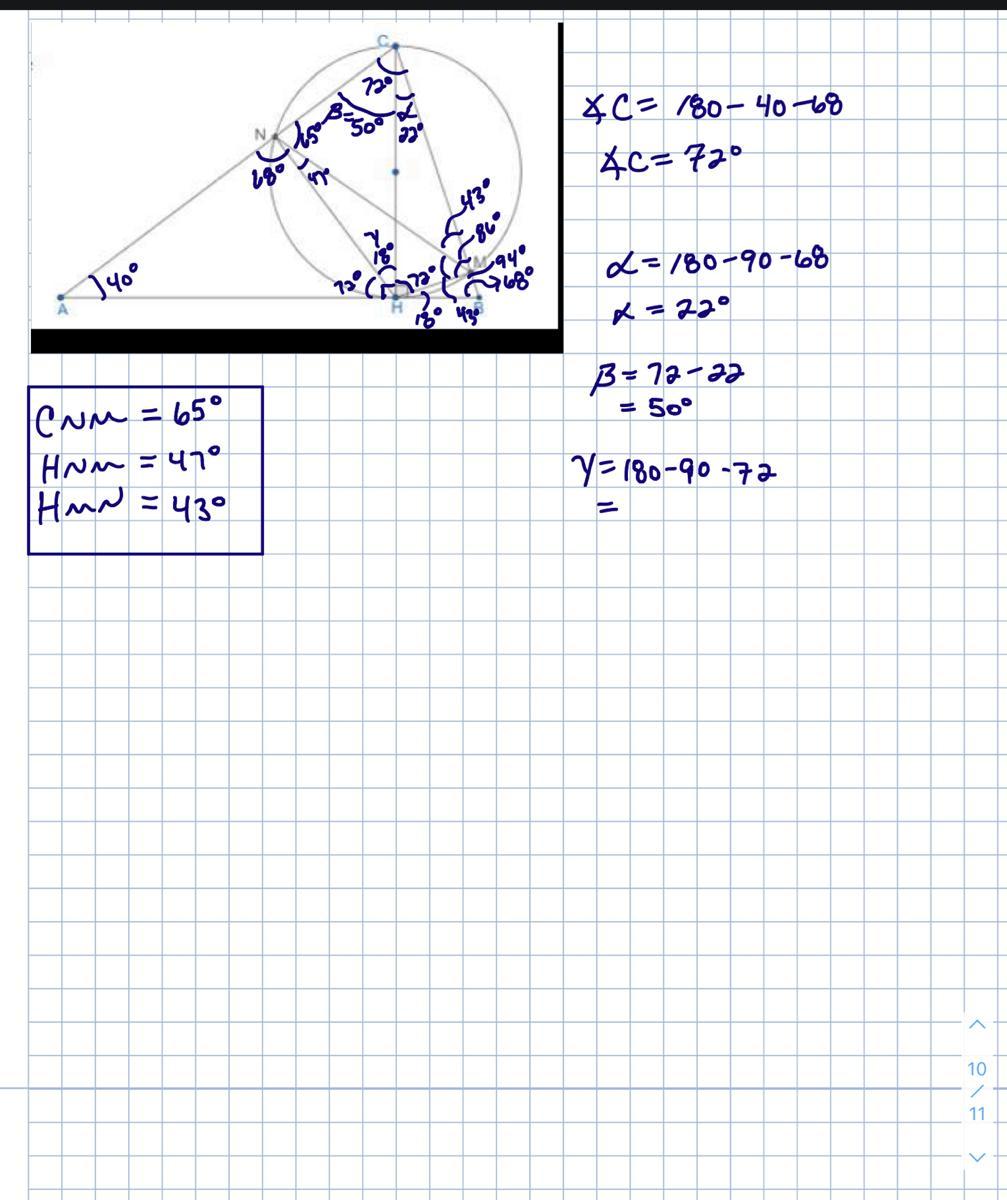 C
72°
β=
50°
α
22°
N
65°
68°
47°
43°
86°
γ
18°
94°
M
68°
40°
72°
72°
A
H
B
18°
43°
∡C = 180 - 40 - 68
∡C = 72°
α = 180 - 90 - 68
α = 22°
β = 72 - 22
= 50°
γ = 180 - 90 - 72
=
CNM = 65°
HNM = 47°
HMN = 43°
10
/
11